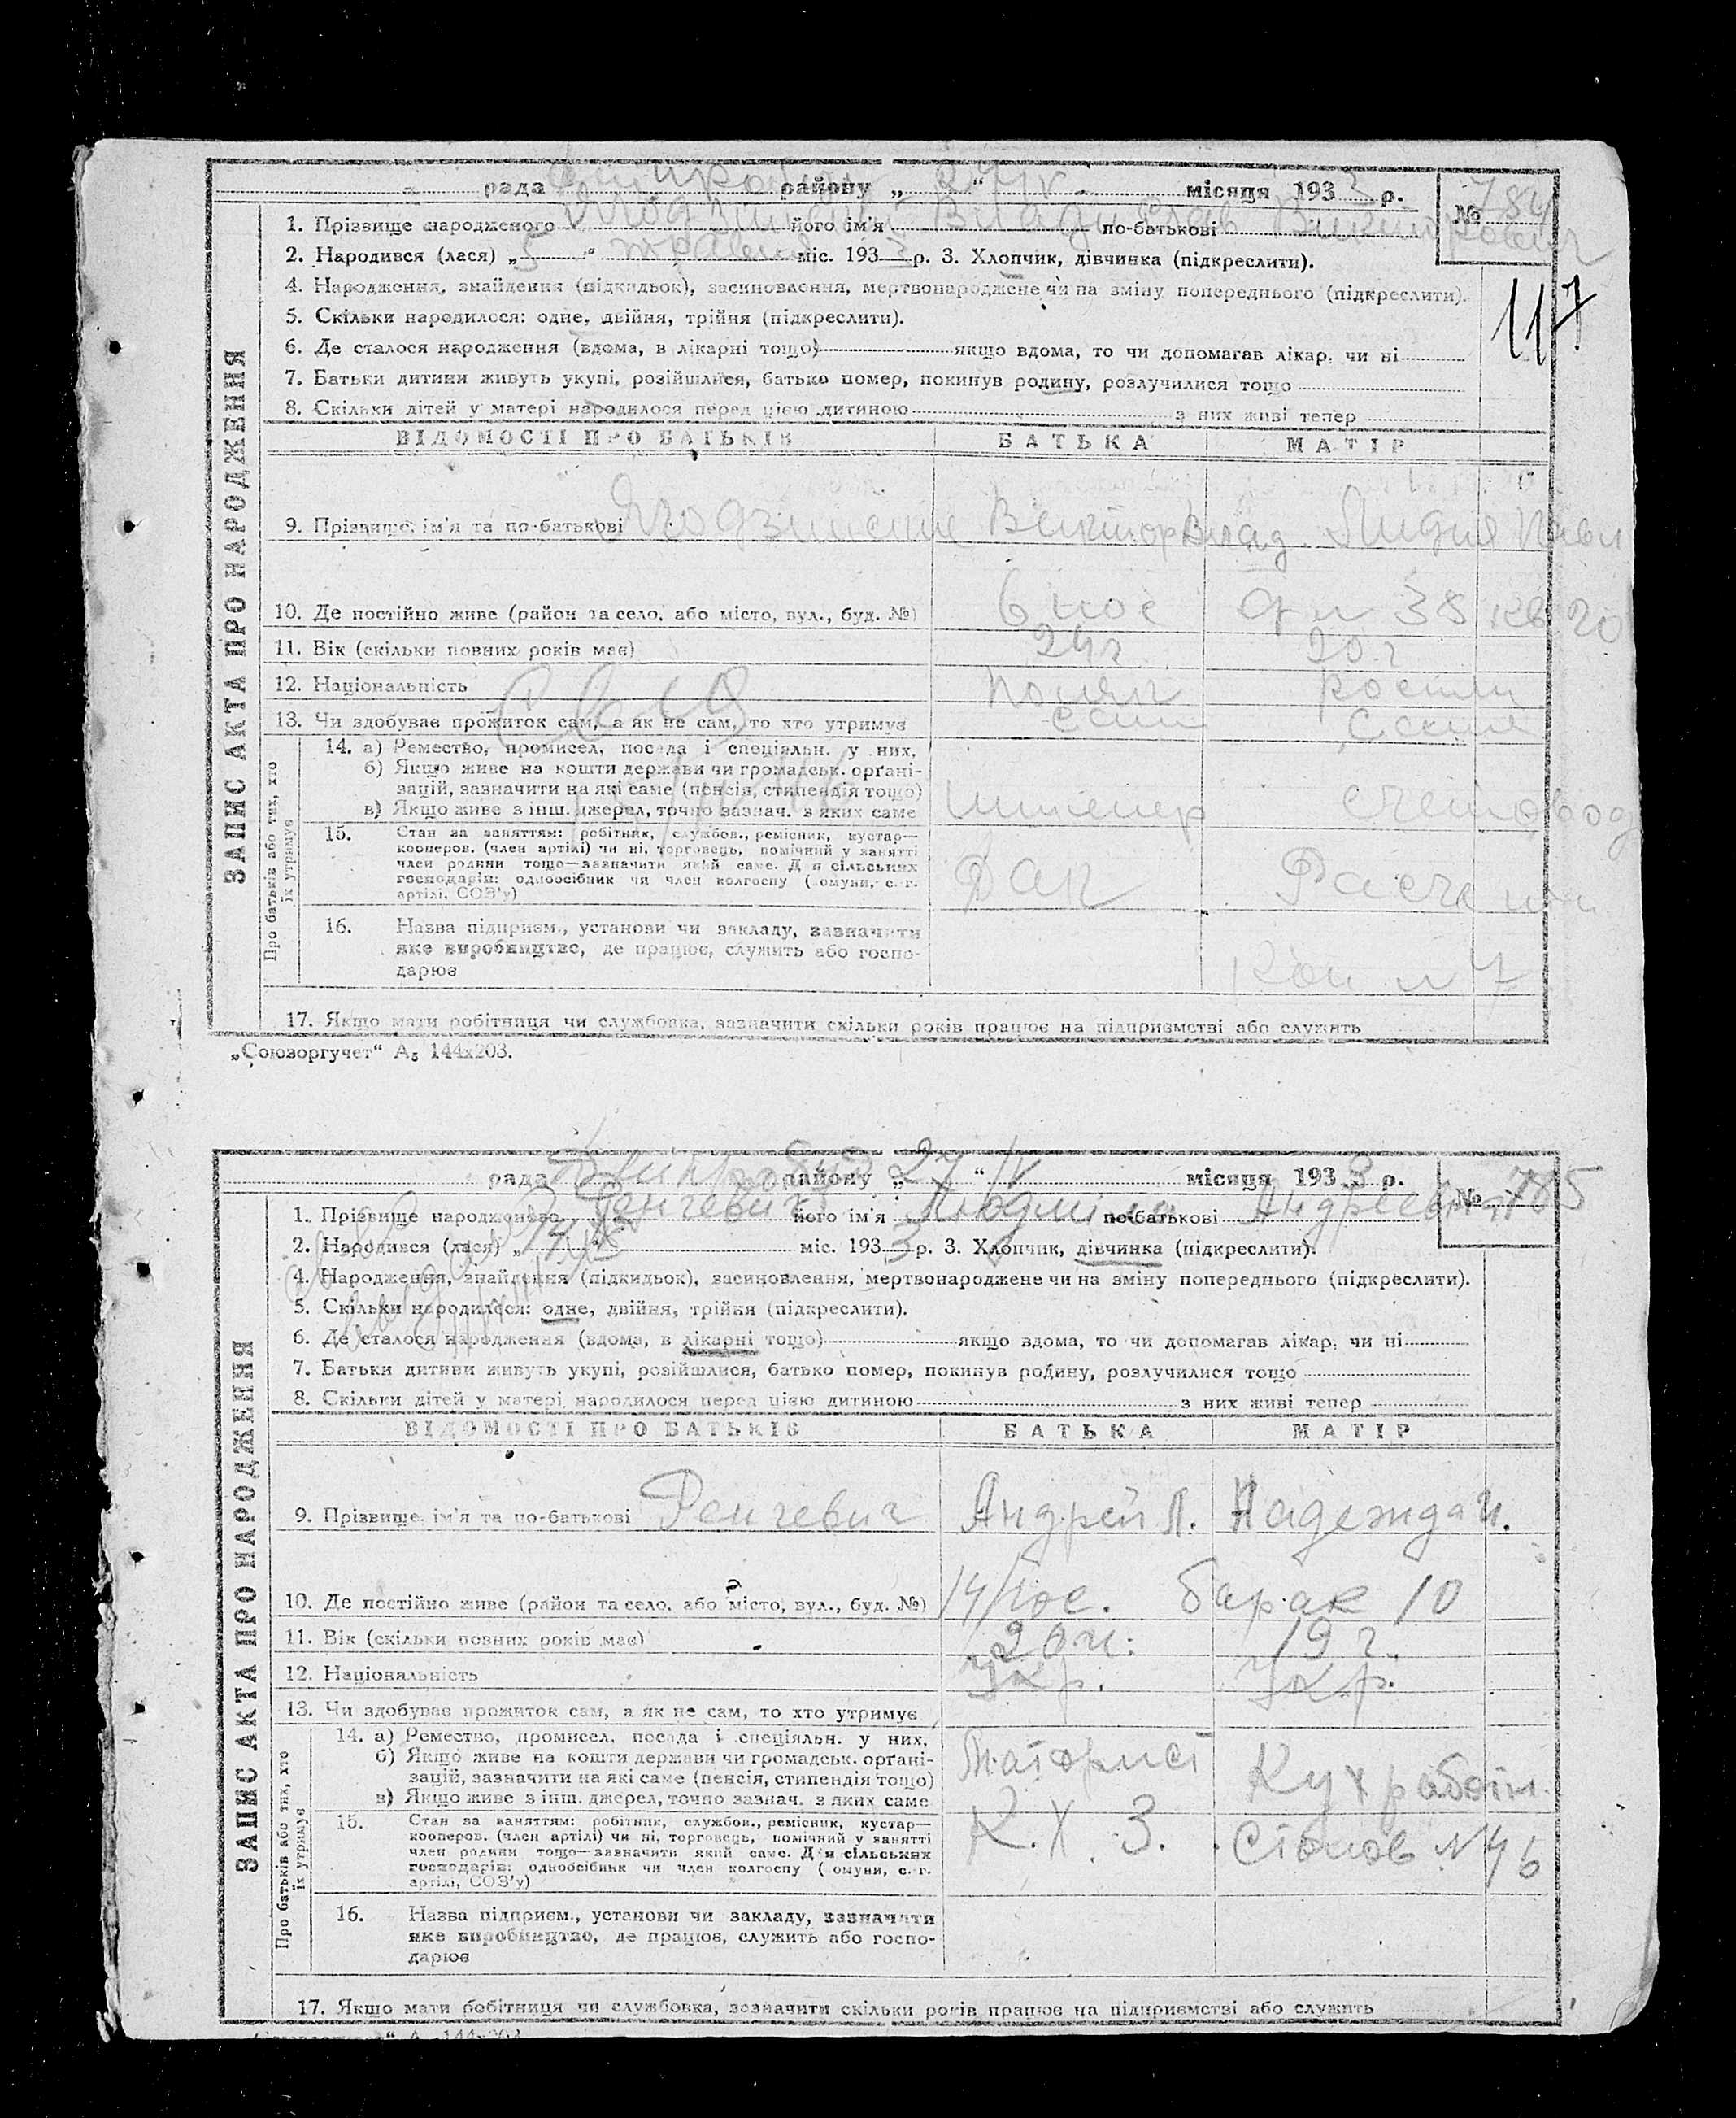 рада району „ 27 “ IV місяця 1933 р. № 784
1. Прізвище народженого його ім'я Владислав по-батькові Викторович
2. Народився (лася) „ 5 “ травня міс. 1933 р. 3. Хлопчик, дівчинка (підкреслити).
117
4. Народження, знайдення (підкидьок), засиновлення, мертвонароджене чи на зміну попереднього (підкреслити).
5. Скільки народилося: одне, двійня, трійня (підкреслити).
6. Де сталося народження (вдома, в лікарні тощо) якщо вдома, то чи допомагав лікар, чи ні
7. Батьки дитини живуть укупі, розійшлися, батько помер, покинув родину, розлучилися тощо
8. Скільки дітей у матері народилося перед цією дитиною з них живі тепер
ЗАПИС АКТА ПРО НАРОДЖЕННЯ
ВІДОМОСТІ ПРО БАТЬКІВ БАТЬКА МАТІР
9. Прізвище, ім'я та по-батькові Виктор Влад. Лидия Павл
10. Де постійно живе (район та село, або місто, вул., буд. №) 6 пос 38 кв 20
11. Вік (скільки повних років має) 24 г 20 г
12. Національність поляк
13. Чи здобуває прожиток сам, а як не сам, то хто утримує сам сама
Про батьків або тих, хто їх утримує
14. а) Ремество, промисел, посада і спеціяльн. у них,
б) Якщо живе на кошти держави чи громадськ. орґані-
зацій, зазначити на які саме (пенсія, стипендія тощо)
в) Якщо живе з інш. джерел, точно зазнач. з яких саме инженер счетовод
15. Стан за заняттям: робітник, службов., ремісник, кустар—
кооперов. (член артілі) чи ні, торговець, помічний у занятті
член родини тощо—зазначити який саме. Для сільських
господарів: одноосібник чи член колгоспу (комуни, с.-г.
артілі, СОЗ'у)
16. Назва підприєм., установи чи закладу, зазначити
яке виробництво, де працює, служить або госпо-
дарює
17. Якщо мати робітниця чи службовка, зазначити скільки років працює на підприємстві або служить
„Союзоргучет“ А5 144х203.
рада району „ 27 “ IV місяця 1933 р. № 785
1. Прізвище народженого Ренгевич його ім'я Людміла по-батькові Андреевна
2. Народився (лася) „ 14 “ міс. 1933 р. 3. Хлопчик, дівчинка (підкреслити).
4. Народження, знайдення (підкидьок), засиновлення, мертвонароджене чи на зміну попереднього (підкреслити).
5. Скільки народилося: одне, двійня, трійня (підкреслити).
6. Де сталося народження (вдома, в лікарні тощо) якщо вдома, то чи допомагав лікар, чи ні
7. Батьки дитини живуть укупі, розійшлися, батько помер, покинув родину, розлучилися тощо
8. Скільки дітей у матері народилося перед цією дитиною з них живі тепер
ЗАПИС АКТА ПРО НАРОДЖЕННЯ
ВІДОМОСТІ ПРО БАТЬКІВ БАТЬКА МАТІР
9. Прізвище, ім'я та по-батькові Ренгевич Андрей Л. Надежда И.
10. Де постійно живе (район та село, або місто, вул., буд. №) 14 пос. барак 10
11. Вік (скільки повних років має) 19 г.
12. Національність Укр. Укр.
13. Чи здобуває прожиток сам, а як не сам, то хто утримує
Про батьків або тих, хто їх утримує
14. а) Ремество, промисел, посада і спеціяльн. у них,
б) Якщо живе на кошти держави чи громадськ. орґані-
зацій, зазначити на які саме (пенсія, стипендія тощо)
в) Якщо живе з інш. джерел, точно зазнач. з яких саме Кух работн.
15. Стан за заняттям: робітник, службов., ремісник, кустар—
кооперов. (член артілі) чи ні, торговець, помічний у занятті
член родини тощо—зазначити який саме. Для сільських
господарів: одноосібник чи член колгоспу (комуни, с.-г.
артілі, СОЗ'у) К. Х. З. Столов №
16. Назва підприєм., установи чи закладу, зазначити
яке виробництво, де працює, служить або госпо-
дарює
17. Якщо мати робітниця чи службовка, зазначити скільки років працює на підприємстві або служить